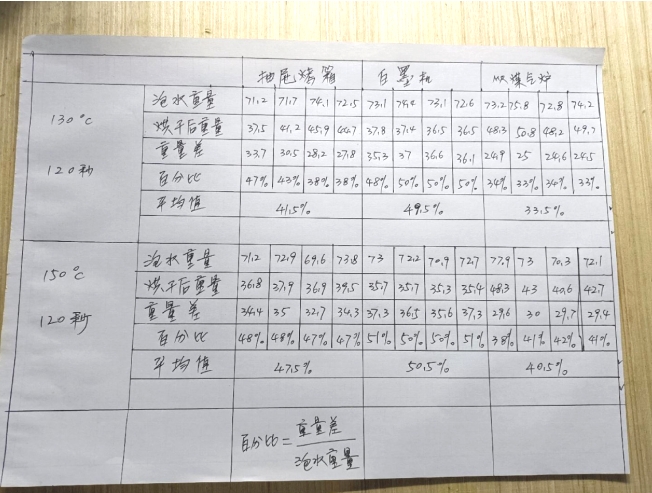 抽屉烤箱 白墨机 MR煤气炉
130°C
120秒
泡水重量 71.2 71.7 74.1 72.5 73.1 74.4 73.1 72.6 73.2 75.8 72.8 74.2
烘干后重量 37.5 41.2 45.9 44.7 37.8 37.4 36.5 36.5 48.3 50.8 48.2 49.7
重量差 33.7 30.5 28.2 27.8 35.3 37 36.6 36.1 24.9 25 24.6 24.5
百分比 47% 43% 38% 38% 48% 50% 50% 50% 34% 33% 34% 33%
平均值 41.5% 49.5% 33.5%
150°C
120秒
泡水重量 71.2 72.9 69.6 73.8 73 72.2 70.9 72.7 77.9 73 70.3 72.1
烘干后重量 36.8 37.9 36.9 39.5 35.7 35.7 35.3 35.4 48.3 43 40.6 42.7
重量差 34.4 35 32.7 34.3 37.3 36.5 35.6 37.3 29.6 30 29.7 29.4
百分比 48% 48% 47% 47% 51% 50% 50% 51% 38% 41% 42% 41%
平均值 47.5% 50.5% 40.5%
百分比 = 重量差
泡水重量